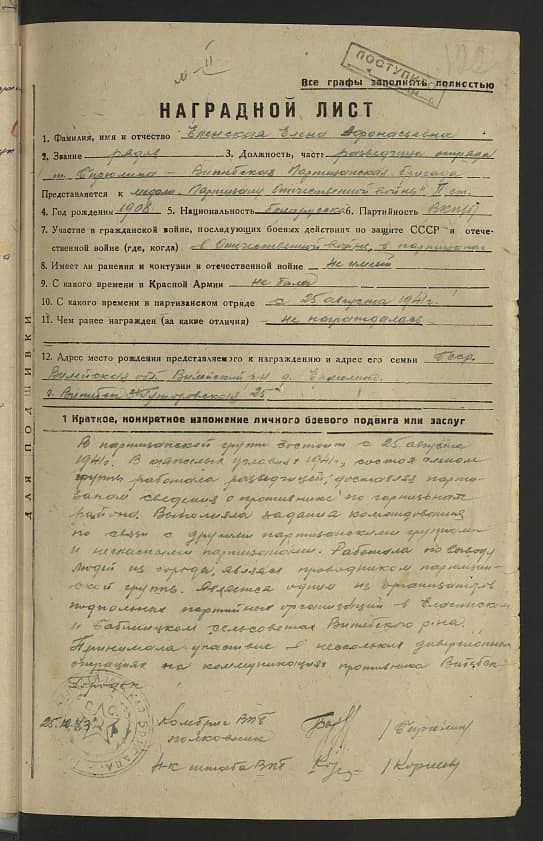 ПОСТУПИЛО
Все графы заполнять полностью
НАГРАДНОЙ ЛИСТ
1. Фамилия, имя и отчество Еленская Елена Афонасьевна
2. Звание рядов 3. Должность, часть разведчица отряда
т. Бирюлина – Витебская Партизанская бригада
Представляется к медали „Партизану Отечественной войны" II ст.
4. Год рождения 1908 5. Национальность белорусска 6. Партийность ВКП(б)
7. Участие в гражданской войне, последующих боевых действиях по защите СССР и отече-
ственной войне (где, когда) в Отечественной войне, в партизанах
8. Имеет ли ранения и контузии в отечественной войне не имеет
9. С какого времени в Красной Армии не была
10. С какого времени в партизанском отряде с 25 августа 1941 г.
11. Чем ранее награжден (за какие отличия) не награждалась
12. Адрес место рождения представляемого к награждению и адрес его семьи БССР.
Вилейская обл. Вилейский р-н д.
г. Витебск 25
1 Краткое, конкретное изложение личного боевого подвига или заслуг
В партизанской группе состоит с 25 августа
1941 г. В тяжелых условиях 1941 г., состоя членом
группы работала разведчицей, доставляя парти-
занам сведения о противнике по
району. Выполняла задания командования
по связи с другими партизанскими группами
и местными партизанами. Работала по выводу
людей из города, являясь проводником партизан-
ской группы. Является одним из организаторов
подпольных партийных организаций в
и Бабиничском сельсоветах Витебского р-на.
Принимала участие в нескольких диверсионных
операциях на коммуникациях противника Витебск-
Городок
25.10.43 Комбриг ВПБ / Бирюлин /
полковник
Н-к штаба ВПБ
ДЛЯ ПОДШИВКИ